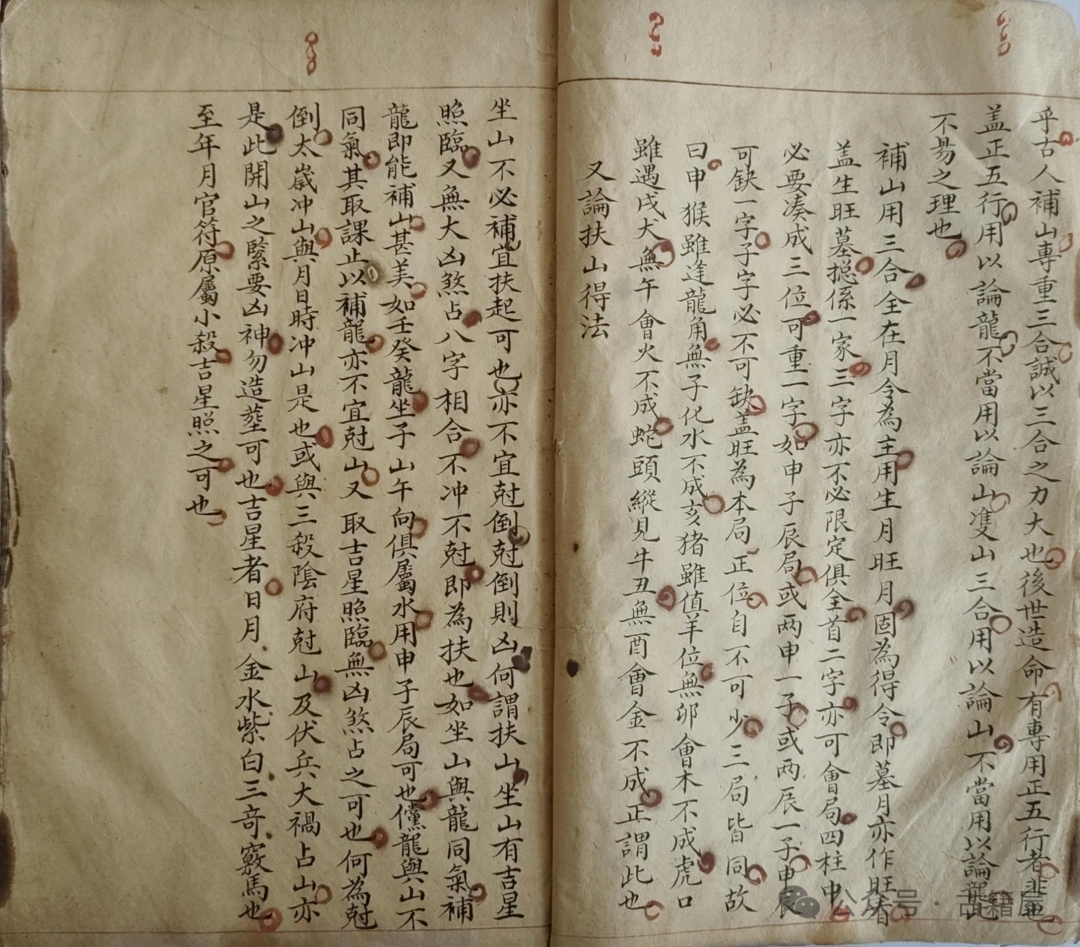 乎古人補山專重三合誠以三合之力大也後世造命有專用正五行者非也
盖正五行用以論龍不當用以論山雙山三合用以論山不當用以論龍此
不易之理也
補山用三合全在月令為主用生月旺月固為得令即墓月亦作旺看
盖生旺墓摠係一家三字亦不必限定俱全首二字亦可會局四柱中
必要凑成三位可重一字如申子辰局或两申一子或两辰一子申辰
可缺一字子字必不可缺盖旺為本局正位自不可少三局皆同故
曰申猴雖逢龍角無子化水不成亥猪雖值羊位無卯會木不成虎口
雖遇戌犬無午會火不成蛇頭縱見牛丑無酉會金不成正謂此也
又論扶山得法
坐山不必補宜扶起可也亦不宜尅倒尅倒則凶何謂扶山坐山有吉星
照臨又無大凶煞占八字相合不冲不尅即為扶也如坐山與龍同氣補
龍即能補山甚美如壬癸龍坐子山午向俱屬水用申子辰局可也儻龍與山不
同氣其取課止以補龍亦不宜尅山又取吉星照臨無凶煞占之可也何為尅
倒太嵗冲山與月日時冲山是也或與三殺陰府尅山及伏兵大禍占山亦
是此開山之緊要凶神勿造塟可也吉星者日月金水紫白三奇竅馬也
至年月官符原屬小殺吉星照之可也
公众号·古籍屋